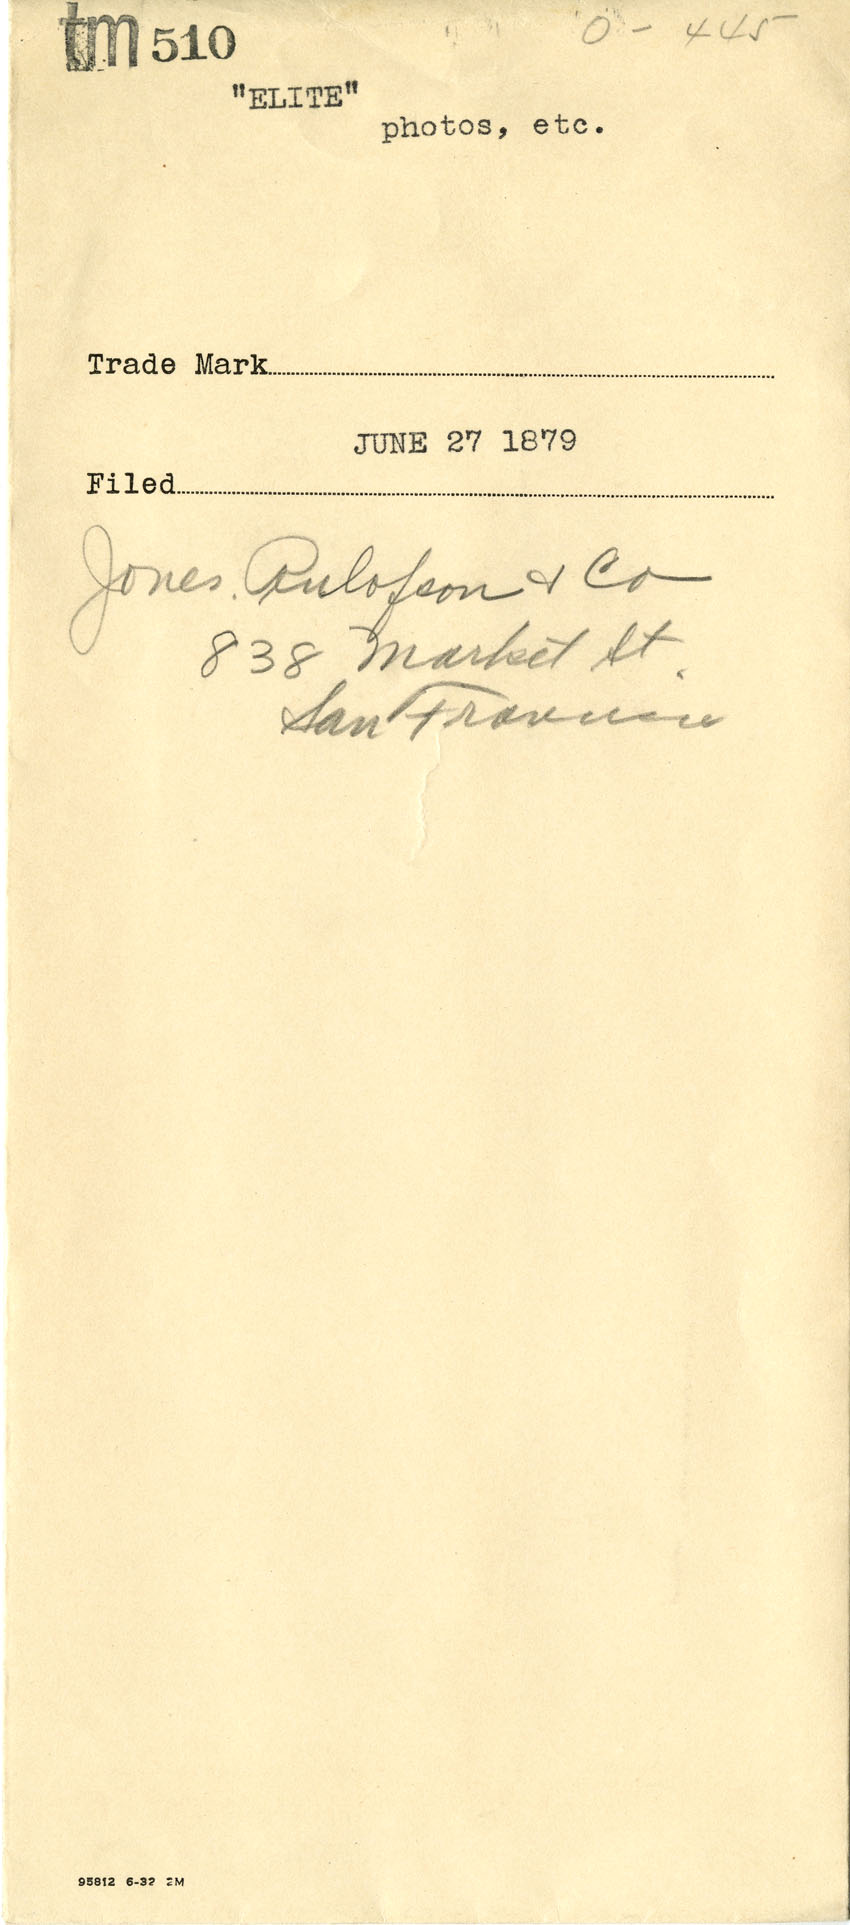 tm 510
0 - 445
"ELITE"
photos, etc.
Trade Mark
JUNE 27 1879
Filed
Jones, Rulofson & Co
838 Market St.
San Francisco
95812 6-32 2M